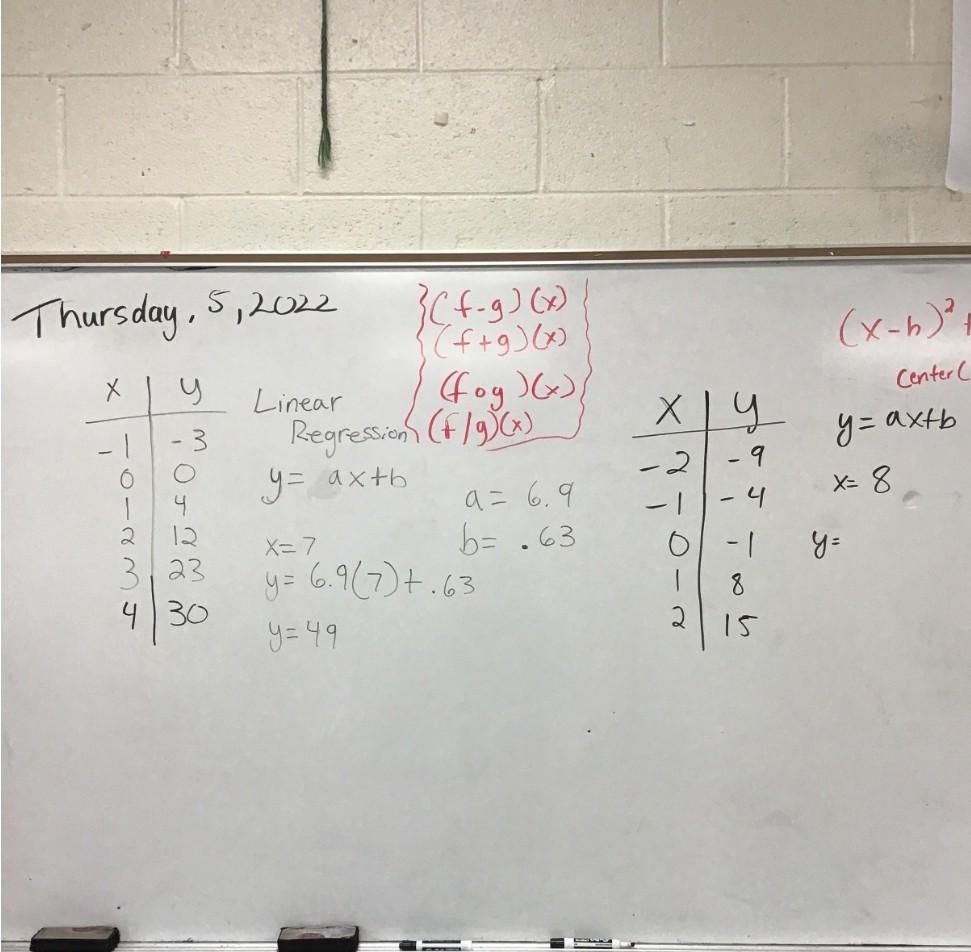 Thursday, 5, 2022
x y
-1 -3
0 0
1 4
2 12
3 23
4 30
Linear
Regression
y= ax+b
x=7
y= 6.9(7)+.63
y=49
a= 6.9
b= .63
(f-g)(x)
(f+g)(x)
(fog)(x)
(f/g)(x)
x y
-2 -9
-1 -4
0 -1
1 8
2 15
(x-h)² +
Center(
y= ax+b
x= 8
y=